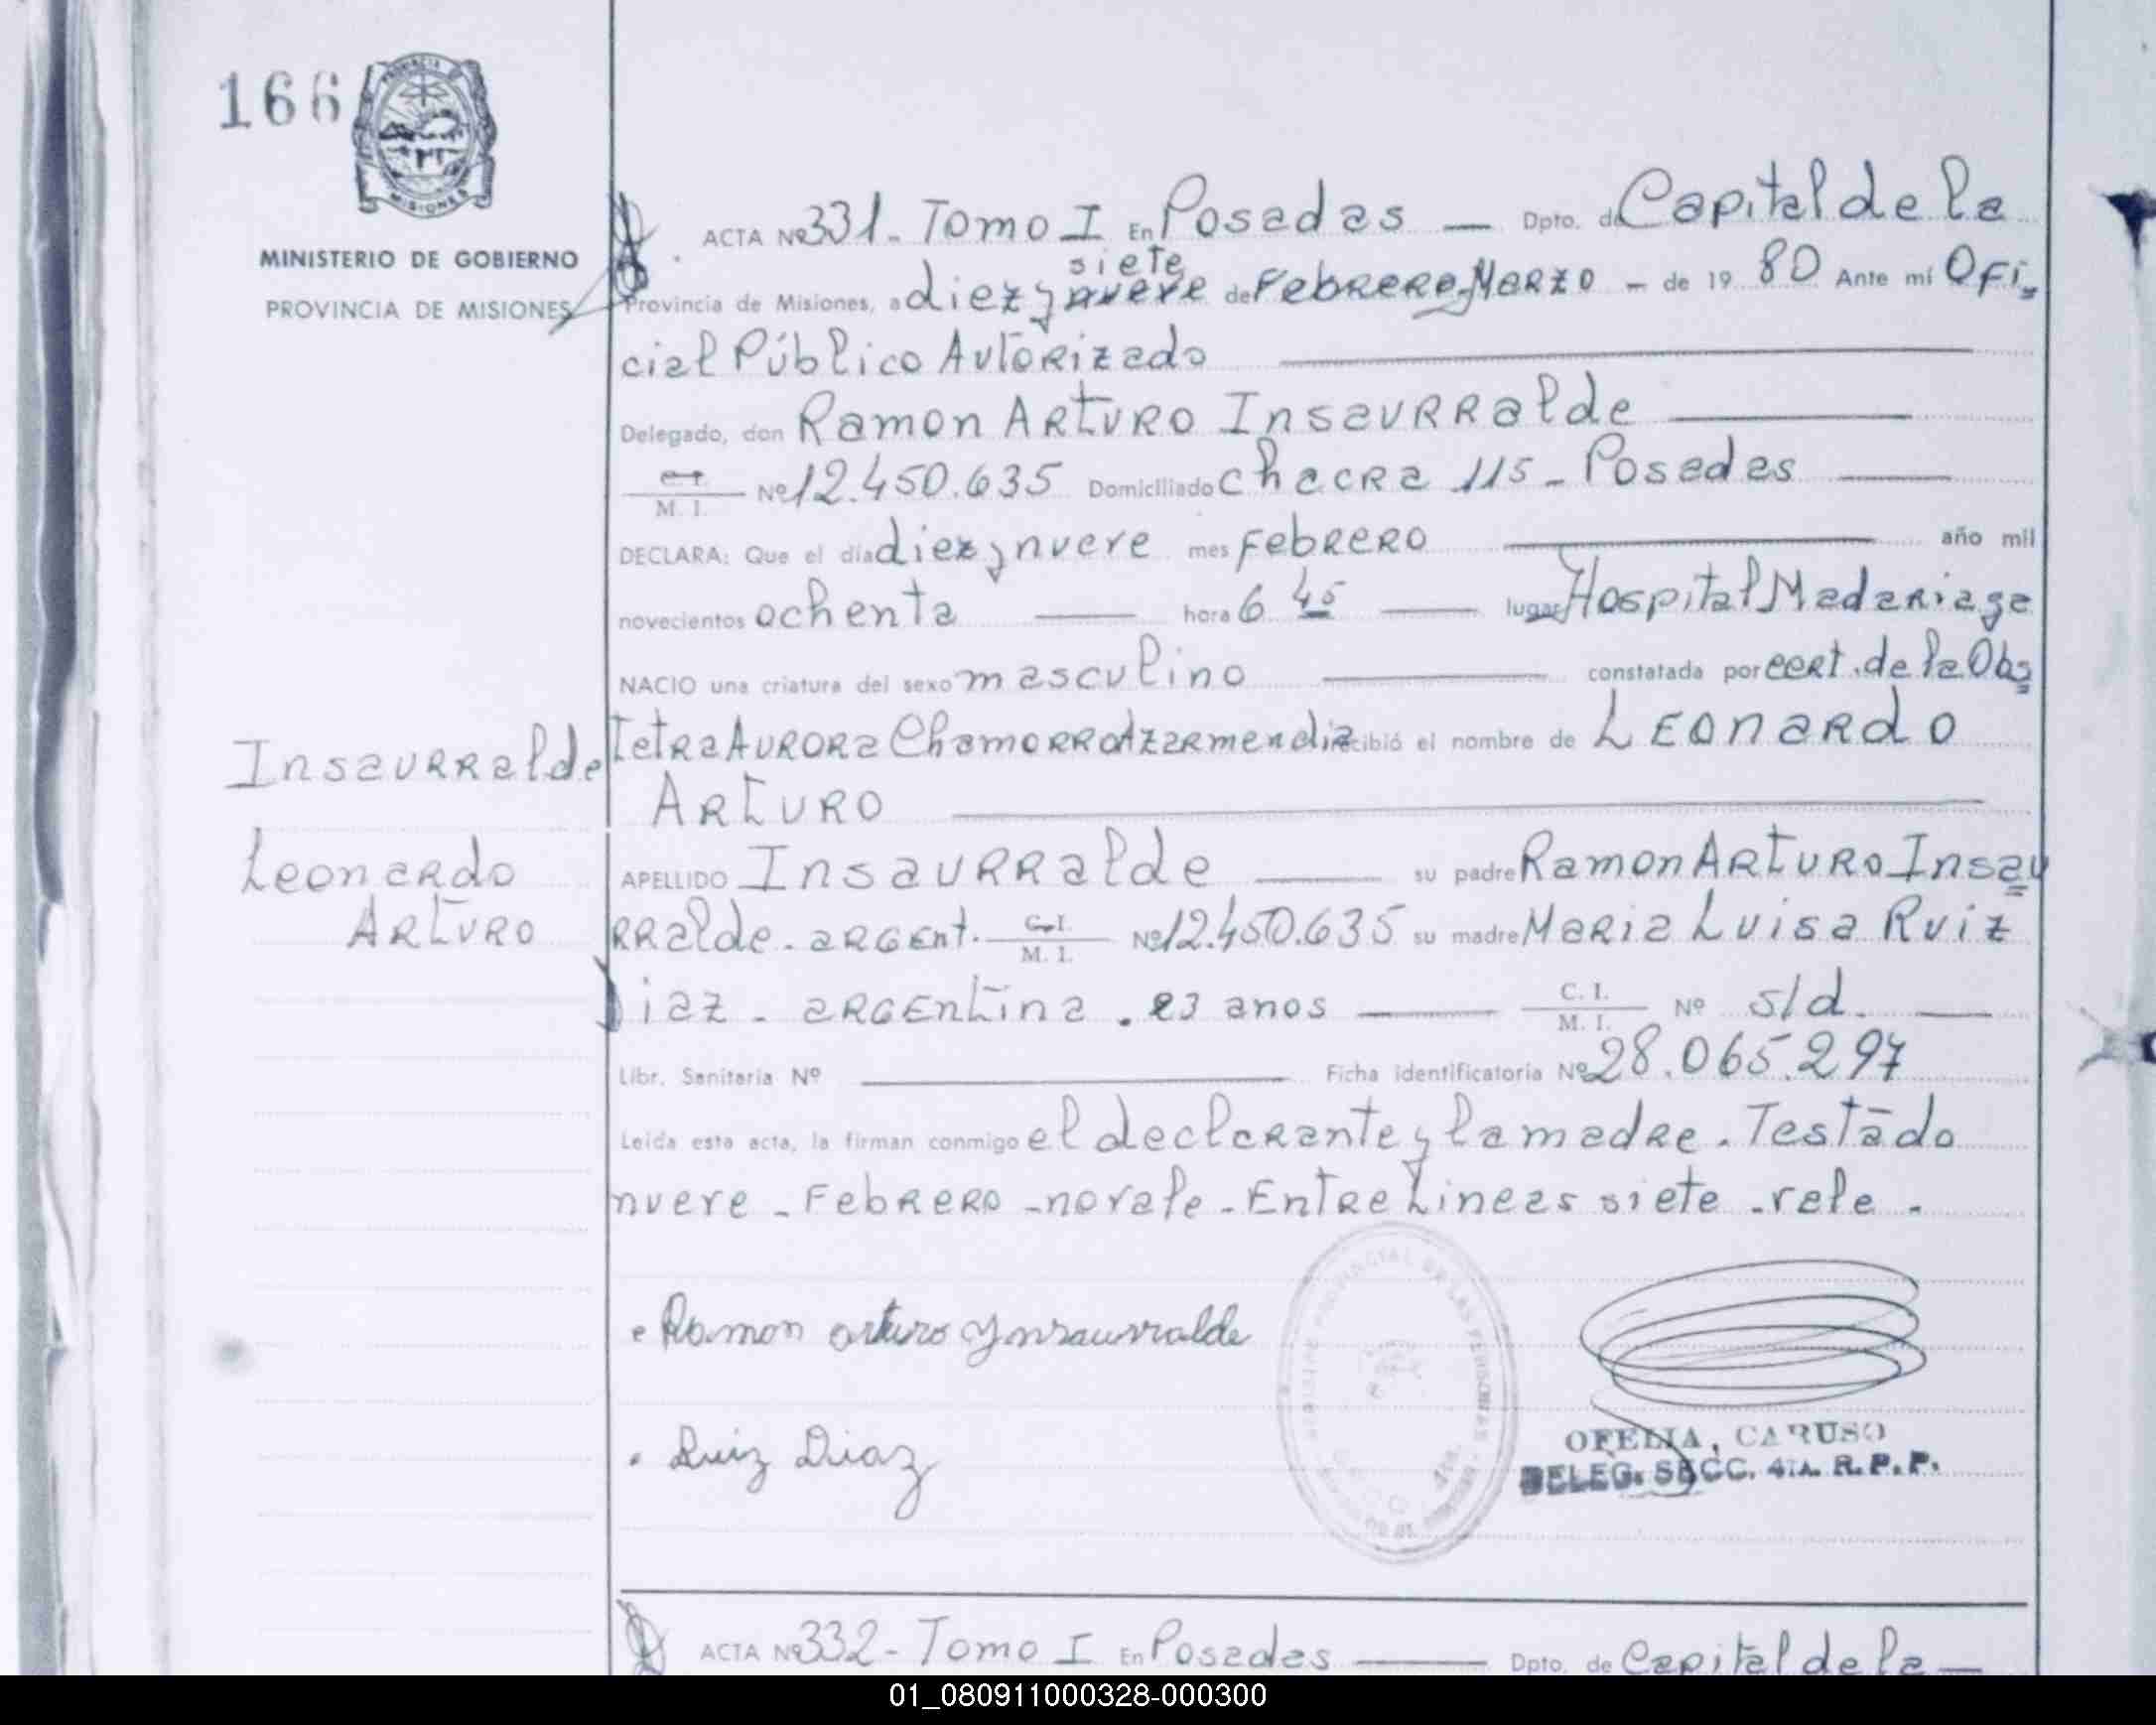 166
PROVINCIA DE
MISIONES
MINISTERIO DE GOBIERNO
PROVINCIA DE MISIONES
ACTA Nº 331 - Tomo I En Posadas — Dpto. de Capital de la
siete
Provincia de Misiones, a diez y nueve de Febrero Marzo - de 19 80 Ante mí Ofi-
cial Público Autorizado
Delegado, don Ramon Arturo Insaurralde
C. I.
M. I. Nº 12.450.635 Domiciliado chacra 115 - Posadas
DECLARA: Que el día diez y nueve mes Febrero año mil
novecientos ochenta hora 6 45 lugar Hospital Madariaga
NACIO una criatura del sexo masculino constatada por cert. de la Obs
Insaurralde
tetra Aurora Chamorro Azarmendia recibió el nombre de Leonardo
Arturo
Leonardo
Arturo
APELLIDO Insaurralde su padre Ramon Arturo Insau
rralde - argent. C. I. M. I. Nº 12.450.635 su madre Maria Luisa Ruiz
Diaz - argentina . 23 anos C. I. M. I. Nº s/d.
Libr. Sanitaria Nº Ficha identificatoria Nº 28.065.297
Leída esta acta, la firman conmigo el declarante y la madre . Testado
nueve - Febrero - no vale - Entre Lineas siete - vale -
Ramon arturo Ynsaurralde
Ruiz Diaz
OFELIA, CARUSO
DELEG. SECC. 4TA. R. P. P.
ACTA Nº 332 - Tomo I En Posadas — Dpto. de Capital de la —
01_080911000328-000300